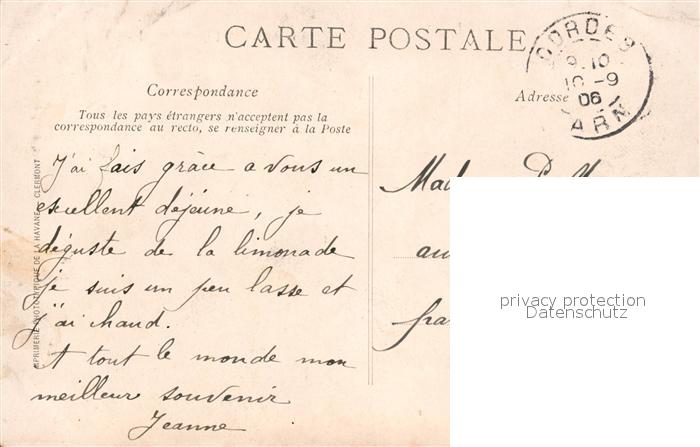 CARTE POSTALE
CORDES
9.10
10-9
06
TARN
Correspondance
Adresse
Tous les pays étrangers n'acceptent pas la
correspondance au recto, se renseigner à la Poste
J'ai fais grâce a vous un
excellent déjeuné, je
déguste de la limonade
je suis un peu lasse et
j'ai chaud.
A tout le monde mon
meilleur souvenir
Jeanne
IMPRIMERIE PHOTOTYPIQUE DE LA HAVANE CLERMONT
au
privacy protection
Datenschutz